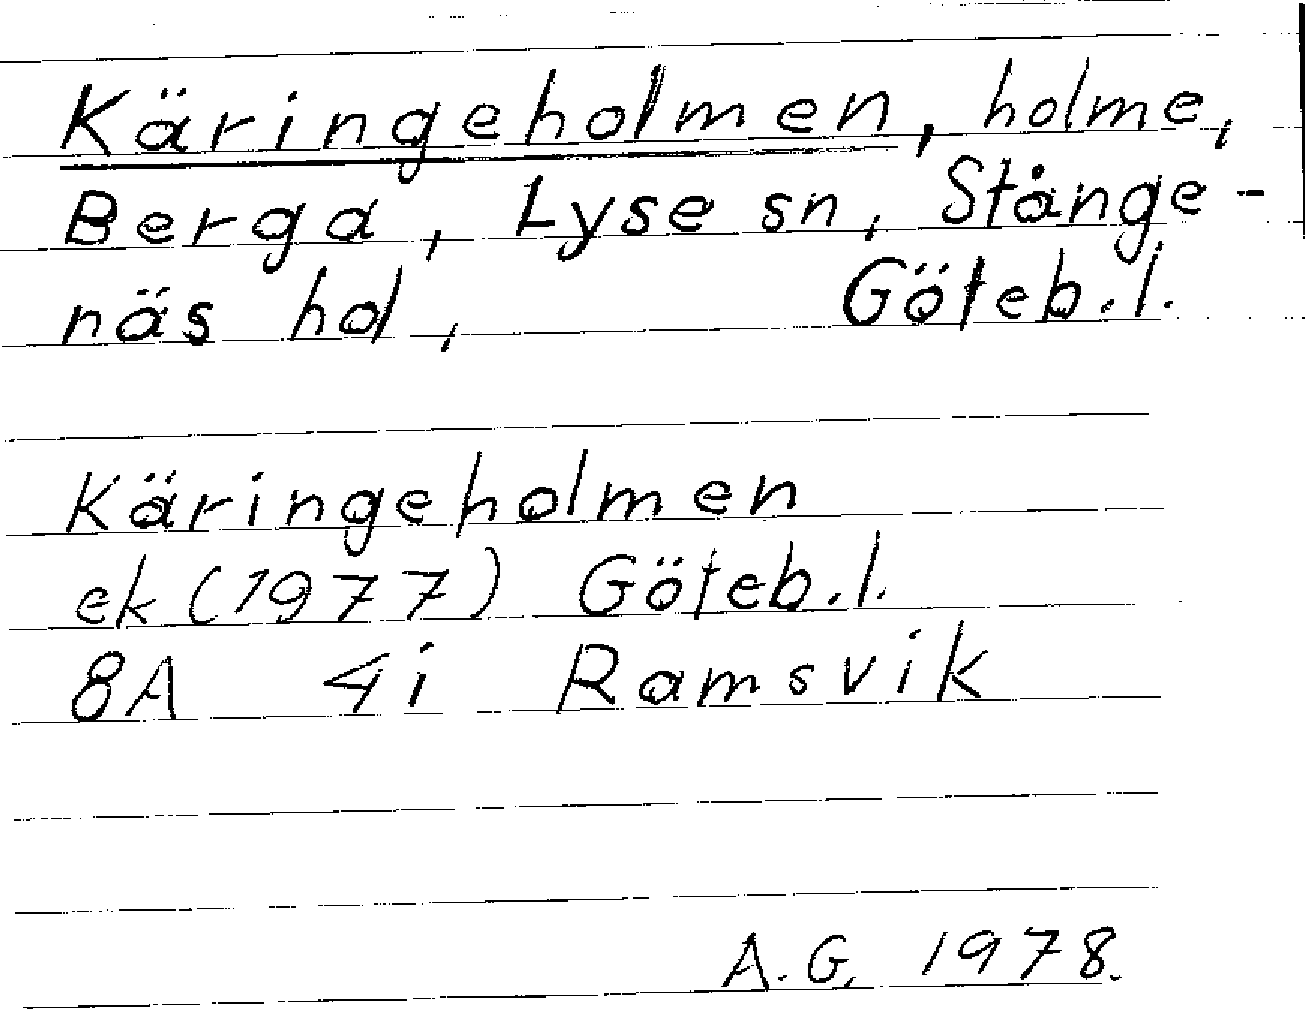 Käringeholmen, holme,
Berga, Lyse sn, Stånge-
näs hd, Göteb.l.
Käringeholmen
ek (1977) Göteb.l.
8A 4i Ramsvik
A.G. 1978.